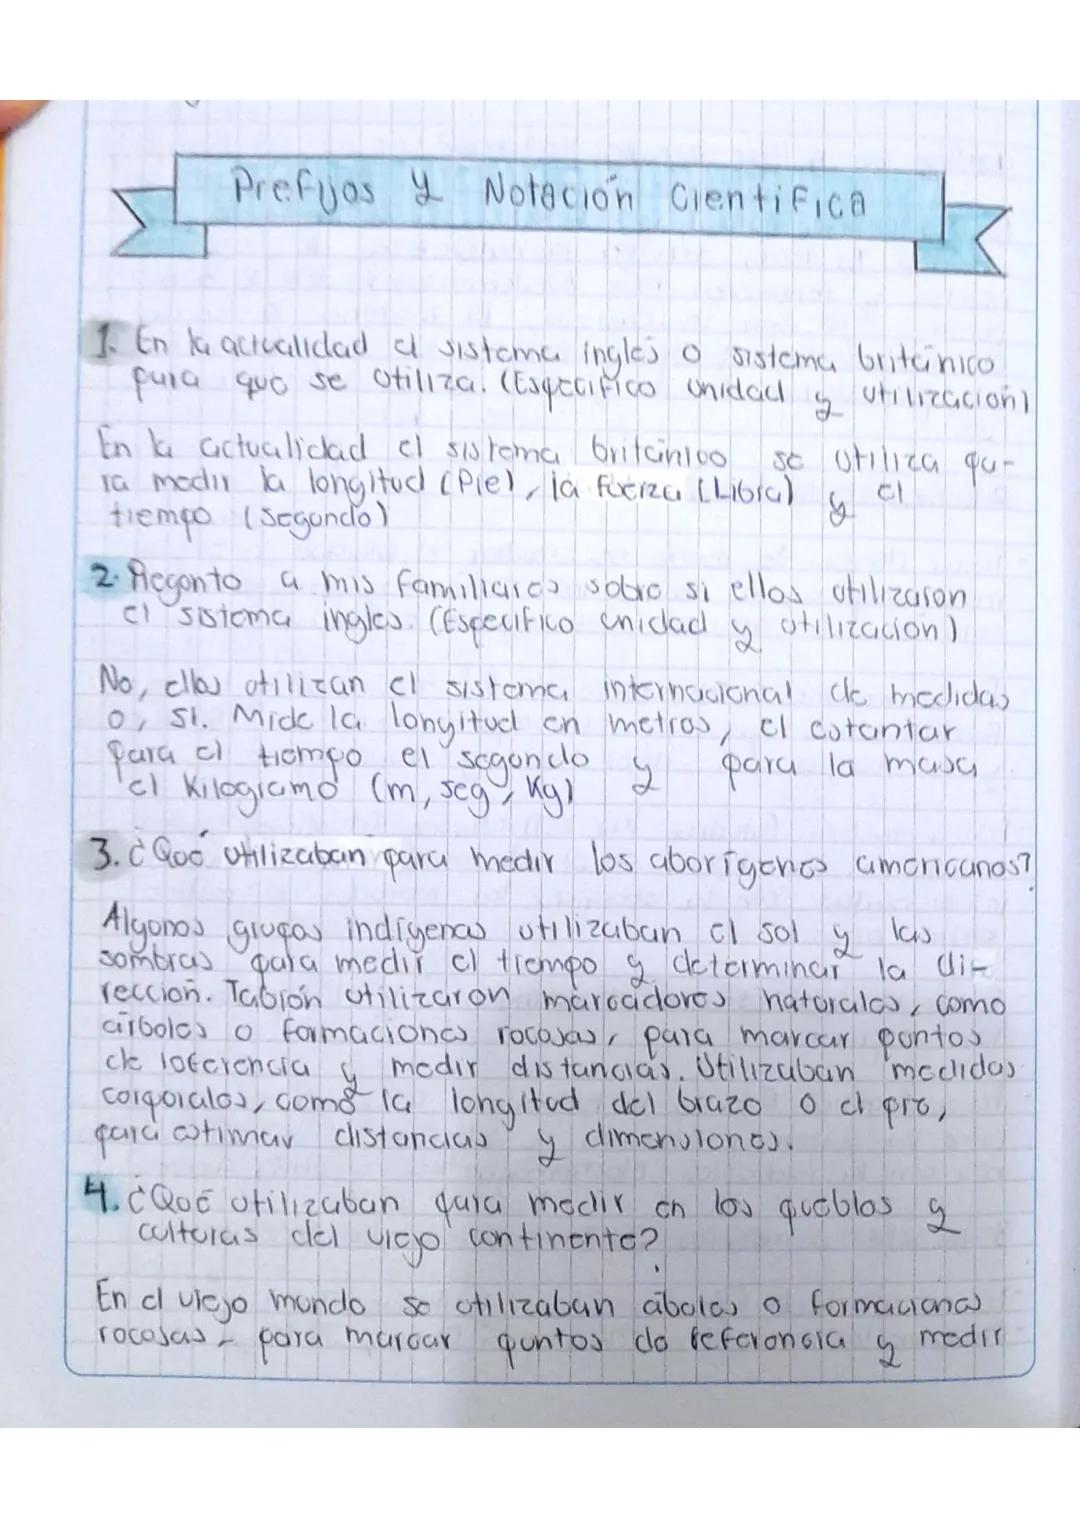 Prefijos y Notación Científica
1. En la actualidad el sistema ingles o sistema británico
para que se utiliza. (Especifico unidad y utilización)
En la actualidad el sistema británico se utiliza pa-
ra medir la longitud (Pie), la fuerza (Libra) y el
tiempo (segundo)
2. Pregunto a mis familiares sobre si ellos utilizaron
el sistema ingles. (Especifico unidad y utilización)
No, ellos utilizan el sistema internacional de medidas
o, SI. Mide la longitud en metros, el estantar
para el tiempo el segundo y para la masa
el Kilogramo (m, seg, Kg)
3. ¿Qué utilizaban para medir los aborígenes americanos?
Algunos grupos indígenas utilizaban el sol y las
sombras para medir el tiempo y determinar la di-
rección. Tabién utilizaron marcadores naturales, como
árboles o formaciones rocosas, para marcar puntos
de referencia y medir distancias. Utilizaban medidas
corporales, como la longitud del brazo o el pie,
para estimar distancias y dimensiones.
4. ¿Qué utilizaban para medir en los pueblos y
culturas del viejo continente?
En el viejo mundo se utilizaban áboles o formaciones
rocosas, para marcar puntos de referencia y medir